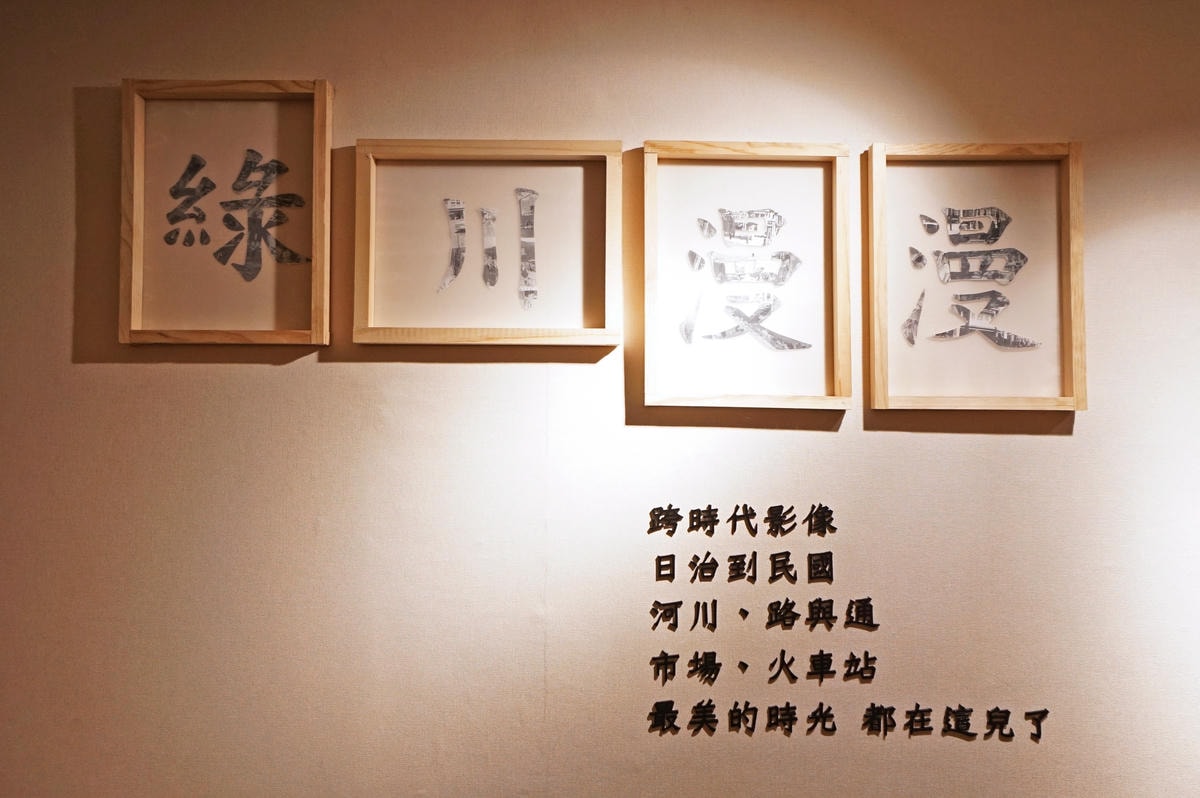 綠川漫漫
跨時代影像
日治到民國
河川、路與通
市場、火車站
最美的時光 都在這兒了